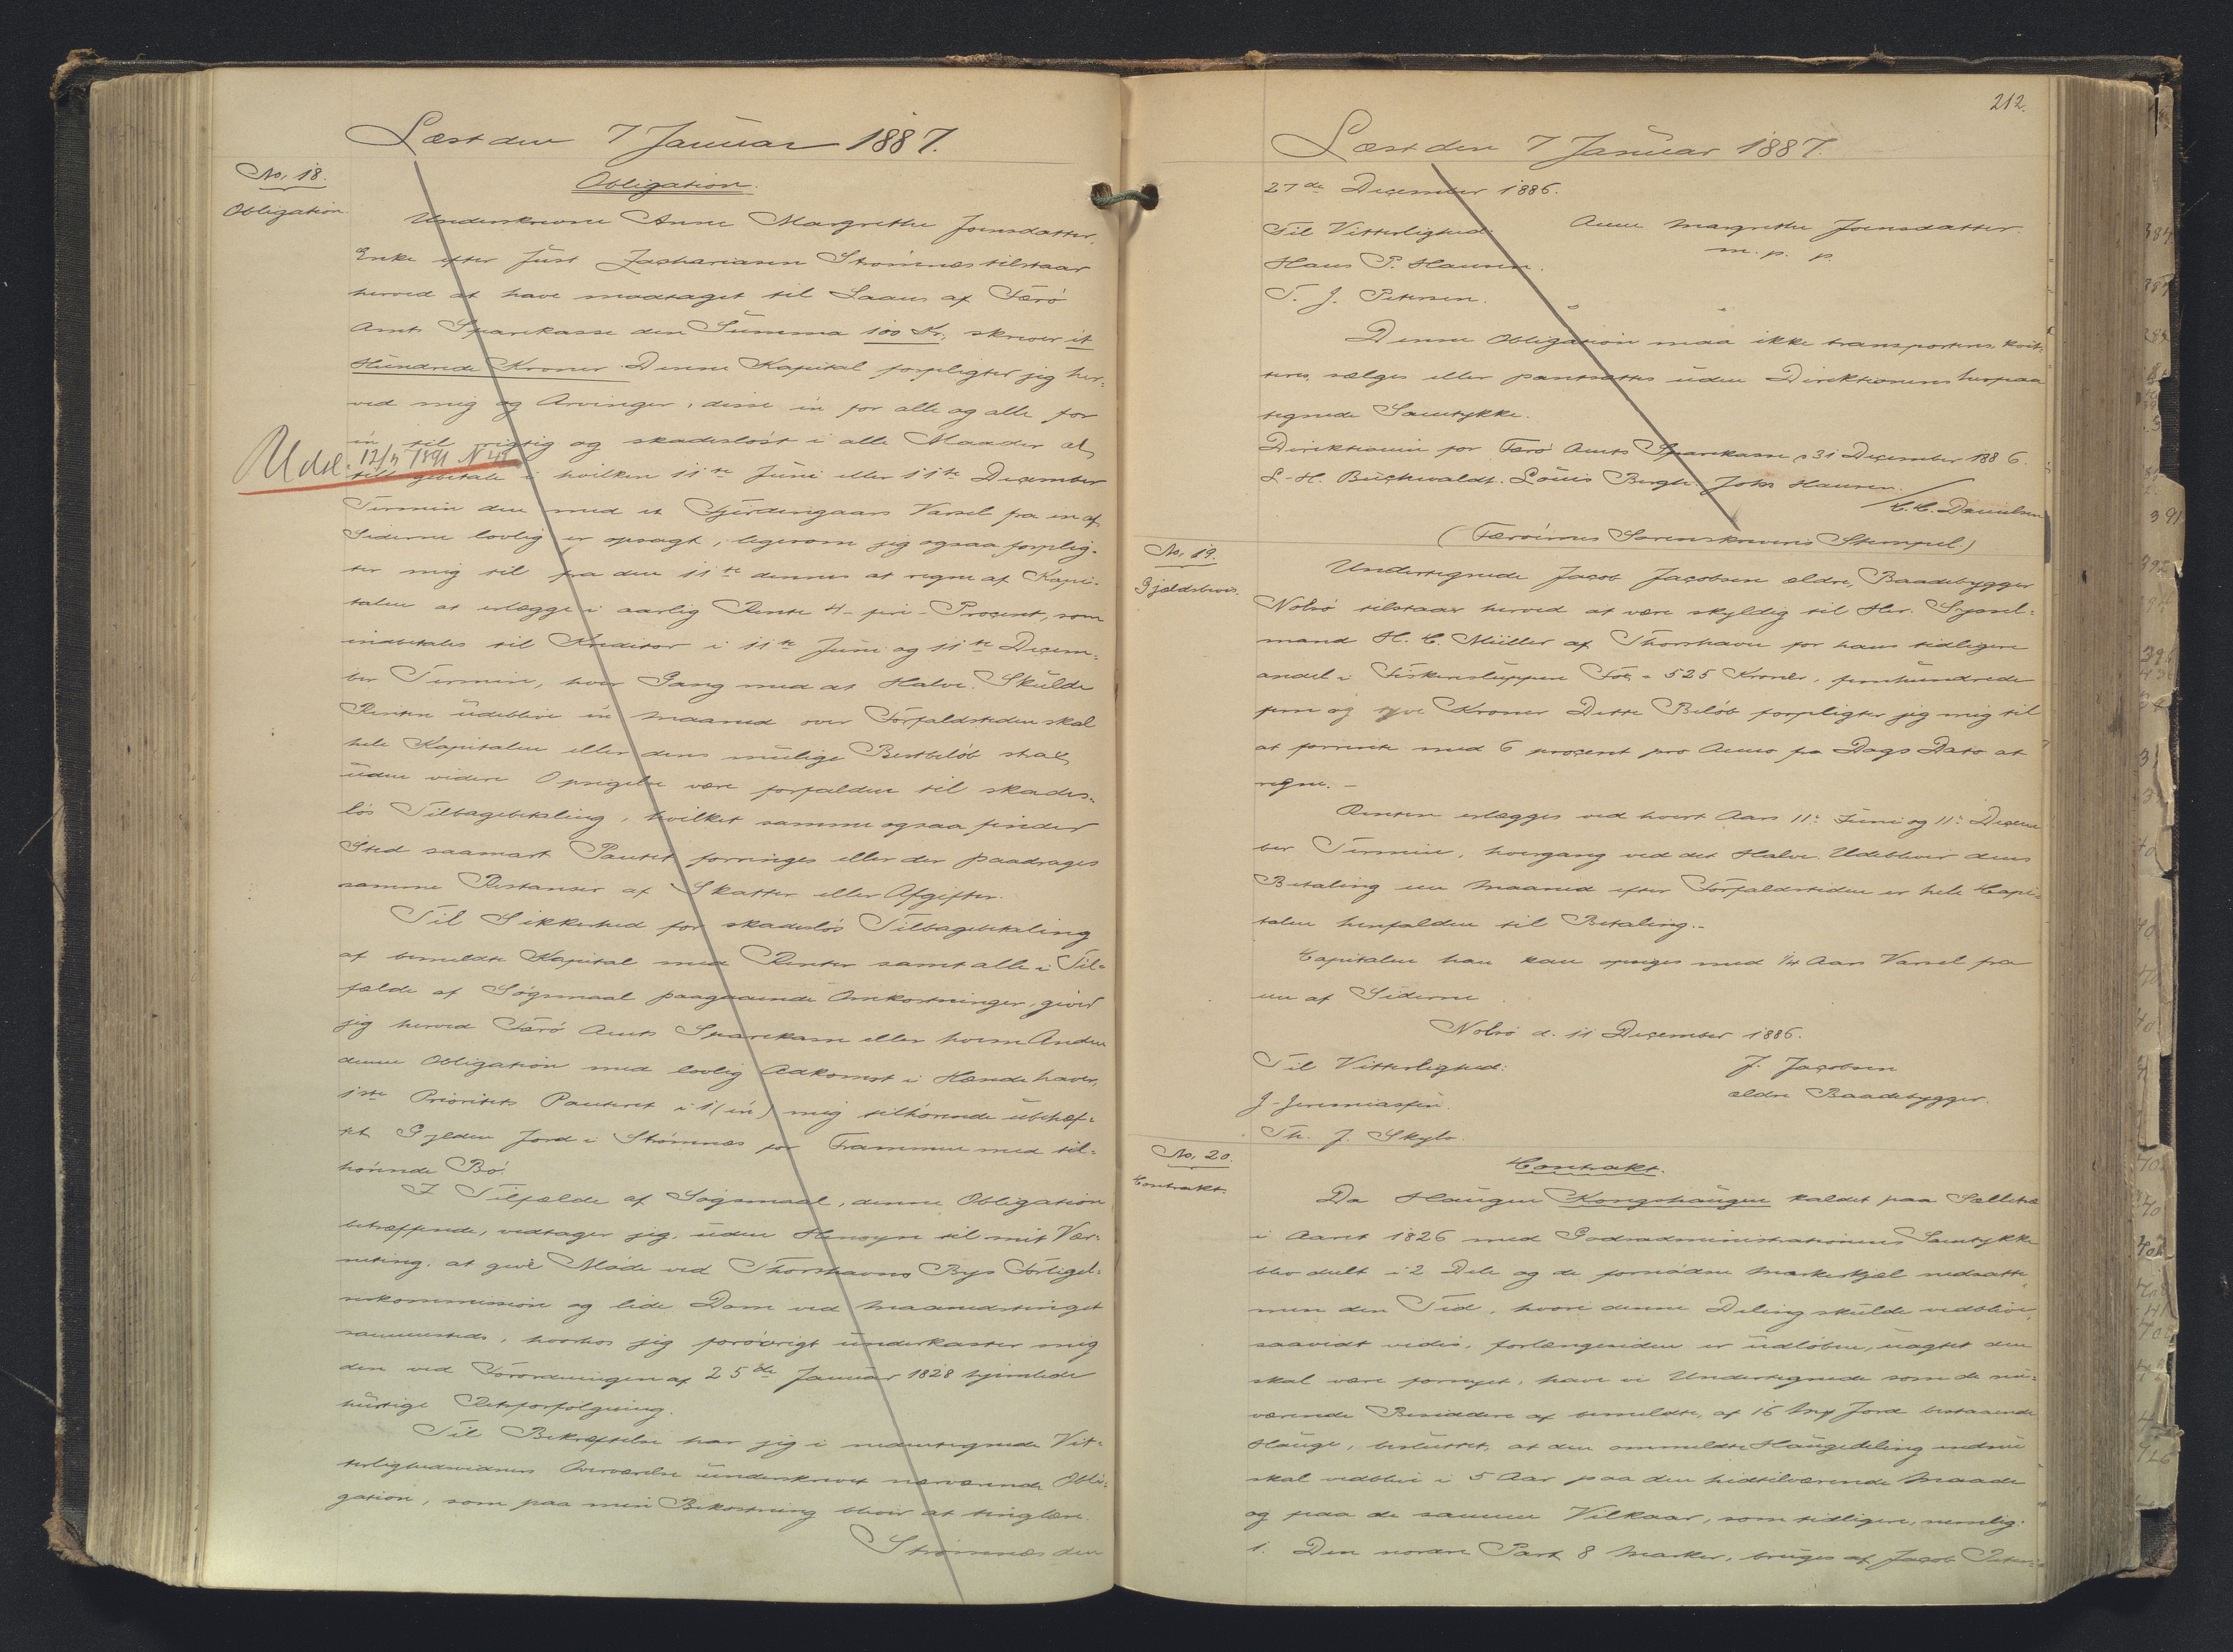 Læst den 7 Januar 1887.
No. 18.
Obligation.
Obligation.
Underskrevne Anne Margrethe Joensdatter,
Enke efter Just Zachariasen Strømnæs tilstaar
herved at have modtaget til Laans af Færø
Amts Sparekasse den Summa 100 Kr., skriver et
Hundrede Kroner. Denne Kapital forpligter jeg her-
ved mig og Arvinger, disse en for alle og alle for
en til rigtig og skadesløst i alle Maader at
Udsl. 12/ 1891 N 48
tilbagebetale i hvilken 11te Juni eller 11te December
Termin den med et Fjerdingaars Varsel fra en af
Siderne lovlig er opsagt, ligesom jeg ogsaa forplig-
ter mig til fra den 11te dennes at regne af Kapi-
talen at erlægge i aarlig Rente 4 - fire - Procent, som
indbetales til Kreditor i 11te Juni og 11te Decem-
ber Termin, hver Gang med det Halve. Skulde
Renten udeblive en Maaned over Forfaldstiden skal
hele Kapitalen eller dens mulige Restbeløb strax
uden videre Opsigelse være forfalden til skades-
løs Tilbagebetaling, hvilket samme ogsaa finder
Sted saasnart Pantet forringes eller der paadrages
samme Restancer af Skatter eller Afgifter.
Til Sikkerhed for skadesløs Tilbagebetaling
af bemeldte Kapital med Renter samt alle i Til-
fælde af Søgsmaal paagaaende Omkostninger, giver
jeg herved Færø Amts Sparekasse eller hvem Anden
denne Obligation med lovlig Adkomst i Hænde haver,
1ste Prioritets Panteret i 1 (en) mig tilhørende ubehæf-
tet Gylden Jord i Strømnæs for Frammen med til-
hørende Bø.
I Tilfælde af Søgsmaal, denne Obligation
betræffende, vedtager jeg, uden Hensyn til mit Vær-
neting, at give Møde ved Thorshavns Bys Forligel-
seskommission og lide Dom ved Maanedstinget
sammesteds, hvorhos jeg forøvrigt underkaster mig
den ved Forordningen af 25de Januar 1828 hjemlede
hurtige Retsforfølgning.
Til Bekræftelse har jeg i nedentegnede Vit-
terlighedsvidners Overværelse underskrevet nærværende Obli-
gation, som paa min Bekostning bliver at tinglæse.
Strømnæs den
212.
Læst den 7 Januar 1887.
27de December 1886.
Til Vitterlighed: Anne Margrethe Joensdatter.
Hans P. Hansen. m. p. p.
T. J. Petersen.
Denne Obligation maa ikke transporteres, kvit-
teres, sælges eller pantsættes uden Direktionens herpaa
tegnede Samtykke.
Direktionen for Færø Amts Sparekasse d 31 December 1886.
L. H. Buchwaldt. Louis Bergh. Johs Hansen.
/C. C. Danielsen
(Færøernes Sorenskriveris Stempel.)
No. 19.
Gjældsbevis.
Undertegnede Jacob Jacobsen ældre, Baadebygger
Nolsø tilstaar herved at være skyldig til Hr. Syssel-
mand H. C. Müller af Thorshavn for hans tidligere
andel i Fiskersluppen Fox - 525 Kroner, femhundrede
fem og tyve Kroner Dette Beløb forpligter jeg mig til
at forrente med 6 procent pro Anno fra Dags Dato at
regne. -
Renten erlægges ved hvert Aars 11' Juni og 11' Decem
ber Termin, hvergang ved det Halve. Udebliver dens
Betaling en Maaned efter Forfaldstiden er hele Capi-
talen henfalden til Betaling.-
Capitalen han kan opsiges med 1/4 Aars Varsel fra
en af Siderne
Nolsø d. 11 December 1886.
Til Vitterlighed: J. Jacobsen
J. Jeremiassen. ældre Baadebygger.
Th. J. Skylv.
No. 20.
Contrakt.
Contrakt.
Da Haugen Kongshaugen kaldet paa Selletræ
i Aaret 1826 med Godsadministrationens Samtykke
blev deelt i 2 Dele og de fornødne Markeskjæl nedsatte,
men den Tid, hvori denne Deling skulde vedblive,
saavidt vides, forlængesiden er udløben, uagtet den
skal være fornyet, have vi Undertegnede som de nu-
værende Besiddere af bemeldte, af 16 Mrk Jord bestaaende
Hauge, besluttet, at den ommeldte Haugedeling endnu
skal vedblive i 5 Aar paa den hidtilværende Maade
og paa de samme Vilkaar, som tidligere, nemlig:
1. Den nordre Part 8 Marker, bruges af Jacob Peter-